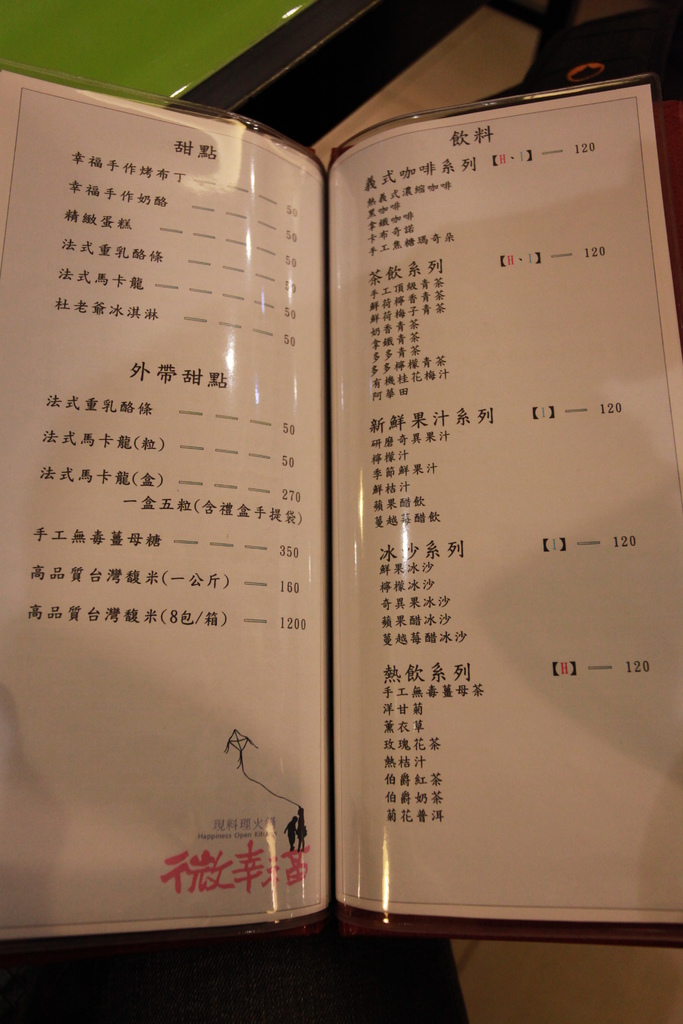 甜點
幸福手作烤布丁 — — — 50
幸福手作奶酪 — — — 50
精緻蛋糕 — — — — 50
法式重乳酪條 — — — 50
法式馬卡龍 — — — — 50
杜老爺冰淇淋 — — — 50
外帶甜點
法式重乳酪條 — — — 50
法式馬卡龍(粒) — — — 50
法式馬卡龍(盒) — — — 270
一盒五粒(含禮盒手提袋)
手工無毒薑母糖 — — — 350
高品質台灣馥米(一公斤) — 160
高品質台灣馥米(8包/箱) — 1200
現料理火鍋
Happiness Open Kitchen
微幸福
飲料
義式咖啡系列 【H、I】 — 120
熱義式濃縮咖啡
黑咖啡
拿鐵咖啡
卡布奇諾
手工焦糖瑪奇朵
茶飲系列 【H、I】 — 120
手工頂級青茶
鮮荷檸香青茶
鮮荷梅子青茶
奶香青茶
拿鐵青茶
多多青茶
多多檸檬青茶
有機桂花梅汁
阿華田
新鮮果汁系列 【I】 — 120
研磨奇異果汁
檸檬汁
季節鮮果汁
鮮桔汁
蘋果醋飲
蔓越莓醋飲
冰沙系列 【I】 — 120
鮮果冰沙
檸檬冰沙
奇異果冰沙
蘋果醋冰沙
蔓越莓醋冰沙
熱飲系列 【H】 — 120
手工無毒薑母茶
洋甘菊
薰衣草
玫瑰花茶
熱桔汁
伯爵紅茶
伯爵奶茶
菊花普洱